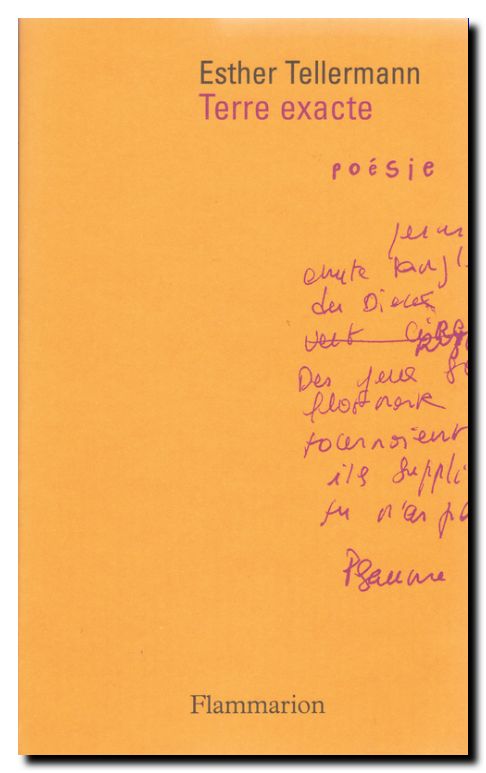 Esther Tellermann
Terre exacte
poésie
chute dans l
des Dieux
vert
Des yeux
flottment
tournoient
ils suppli
tu n'as pa
Psaume
Flammarion